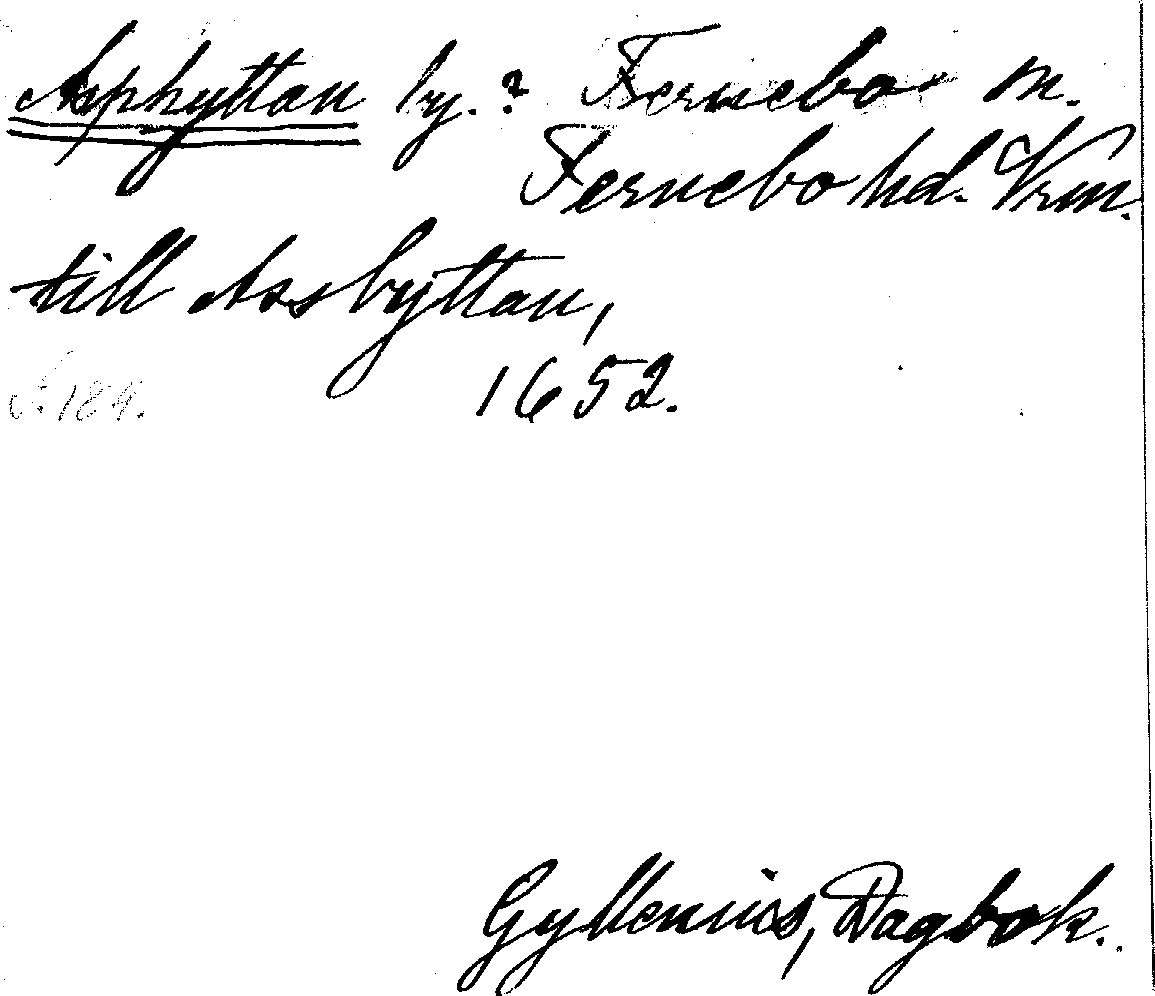 Asphyttan by.? Fernebo m.
Fernebo hd. Vrm.
till Assbyttan,
S. 189. 1652.
Gyllenius, Dagbok.